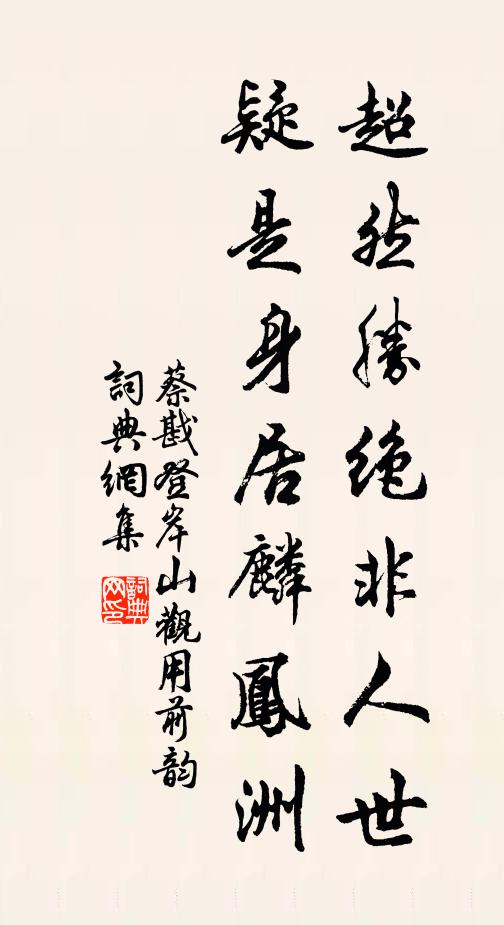 超然勝絶非人世
疑是身居麟鳳洲
蔡戡登岸山觀用前韵
詞典網集
詞典網印